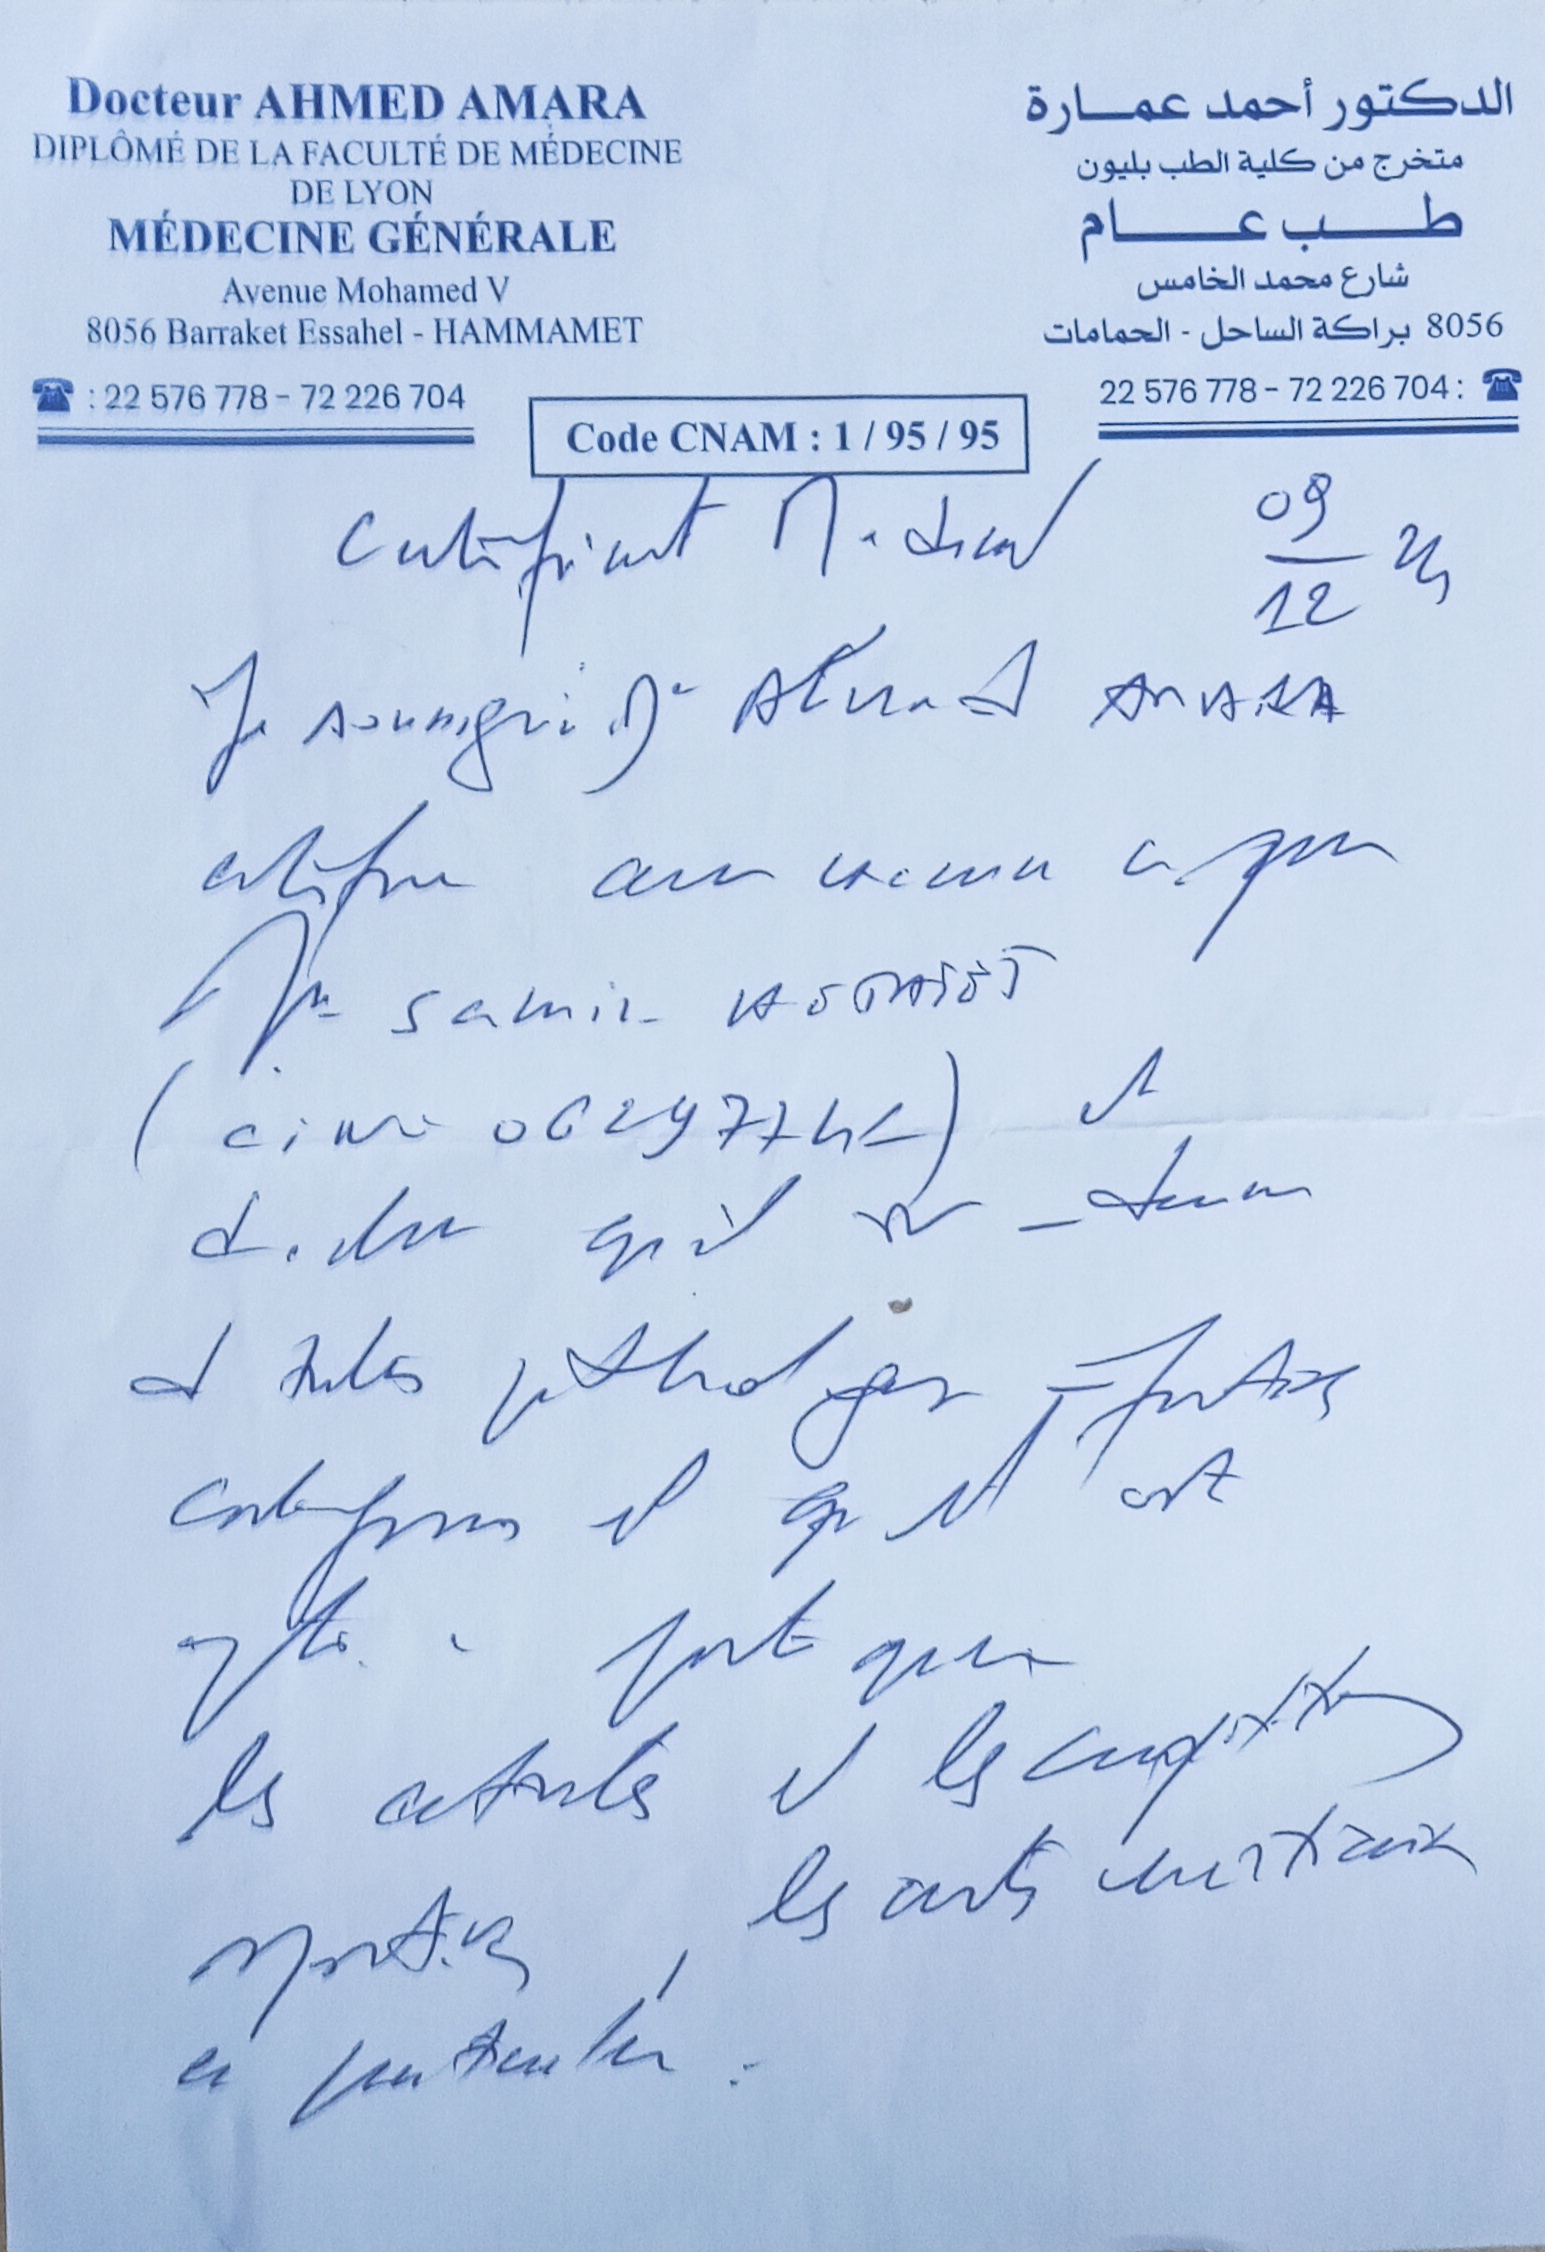 Docteur AHMED AMARA
DIPLÔMÉ DE LA FACULTÉ DE MÉDECINE
DE LYON
MÉDECINE GÉNÉRALE
Avenue Mohamed V
8056 Barraket Essahel - HAMMAMET
: 22 576 778 - 72 226 704
الدكتور أحمد عمارة
متخرج من كلية الطب بليون
طب عام
شارع محمد الخامس
8056 براكة الساحل - الحمامات
22 576 778 - 72 226 704 :
Code CNAM : 1 / 95 / 95
Certificat Medical
09
12
Je soussigné Dr Ahmed AMARA
certifie avoir examiné ce jour
Mr Samir
et
déclare qu'il est indemne
de toutes pathologies infectieuses
contagieuses et qu'il est
apte à pratiquer
les activités et les compétitions
sportives, les arts martiaux
en particulier.